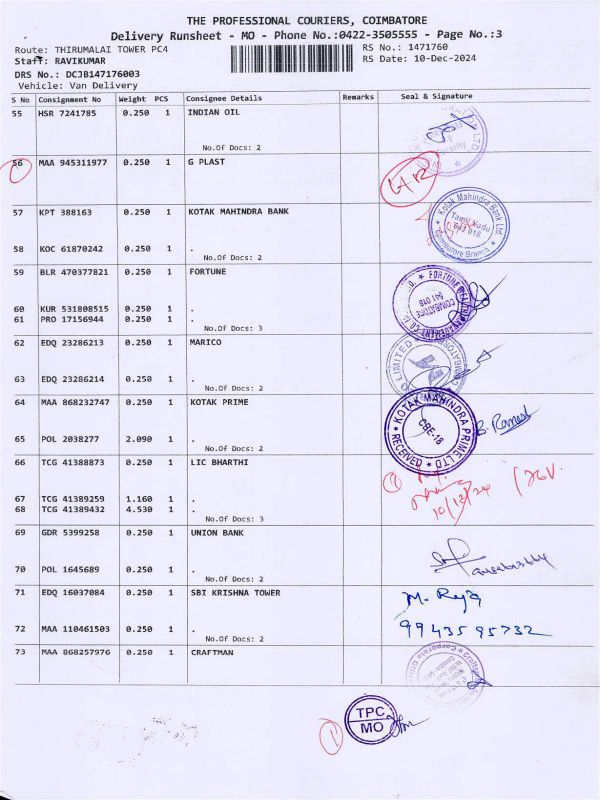 THE PROFESSIONAL COURIERS, COIMBATORE
Delivery Runsheet - MO - Phone No.:0422-3505555 - Page No.:3
Route: THIRUMALAI TOWER PC4 RS No.: 1471760
Staff: RAVIKUMAR RS Date: 10-Dec-2024
DRS No.: DCJB147176003
Vehicle: Van Delivery
S No Consignment No Weight PCS Consignee Details Remarks Seal & Signature
55 HSR 7241785 0.250 1 INDIAN OIL
No.Of Docs: 2
56 MAA 945311977 0.250 1 G PLAST
57 KPT 388163 0.250 1 KOTAK MAHINDRA BANK
Kotak Mahindra Bank Ltd.
Tamil Nadu
641 018
Coimbatore Branch
58 KOC 61870242 0.250 1 .
No.Of Docs: 2
59 BLR 470377821 0.250 1 FORTUNE
COIMBATORE
641 018
60 KUR 531808515 0.250 1 .
61 PRO 17156944 0.250 1 .
No.Of Docs: 3
62 EDQ 23286213 0.250 1 MARICO
LIMITED
63 EDQ 23286214 0.250 1 .
No.Of Docs: 2
64 MAA 868232747 0.250 1 KOTAK PRIME
KOTAK MAHINDRA PRIME LTD
CBE-18
RECEIVED
B. Ramesh
65 POL 2038277 2.090 1 .
No.Of Docs: 2
66 TCG 41388873 0.250 1 LIC BHARTHI
10/12/24
67 TCG 41389259 1.160 1 .
68 TCG 41389432 4.530 1 .
No.Of Docs: 3
69 GDR 5399258 0.250 1 UNION BANK
70 POL 1645689 0.250 1 .
No.Of Docs: 2
71 EDQ 16037084 0.250 1 SBI KRISHNA TOWER
M. Raja
72 MAA 110461503 0.250 1 .
9943595732
No.Of Docs: 2
73 MAA 868257976 0.250 1 CRAFTMAN
TPC
MO
1